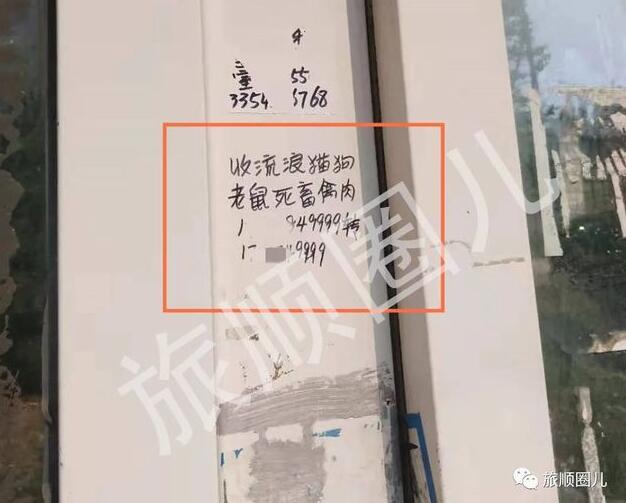 55
3354 5768
收流浪猫狗
老鼠死畜禽肉
1 849999转
17 49999
旅顺圈儿
旅顺圈儿